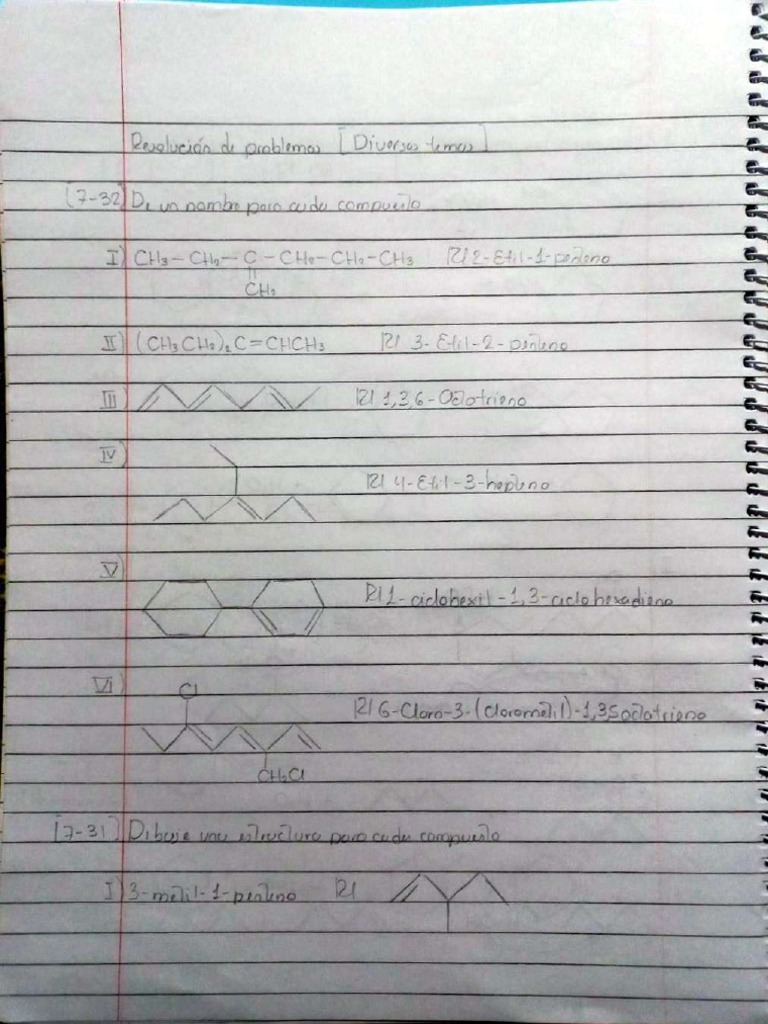 Resolución de problemas [Diversos temas]
[7-32] De un nombre para cada compuesto
I) CH3 - CH2 - C - CH2 - CH2 - CH3 R/ 2-Etil-1-penteno
CH2
II) (CH3CH2)2C=CHCH3 R/ 3-Etil-2-penteno
III) R/ 1,3,6-Octatrieno
IV) R/ 4-Etil-3-hepteno
V) R/ 1-ciclohexil-1,3-ciclohexadieno
VI) Cl R/ 6-Cloro-3-(clorometil)-1,3,5octatrieno
CH2Cl
[7-31] Dibuje una estructura para cada compuesto
I) 3-metil-1-penteno R/